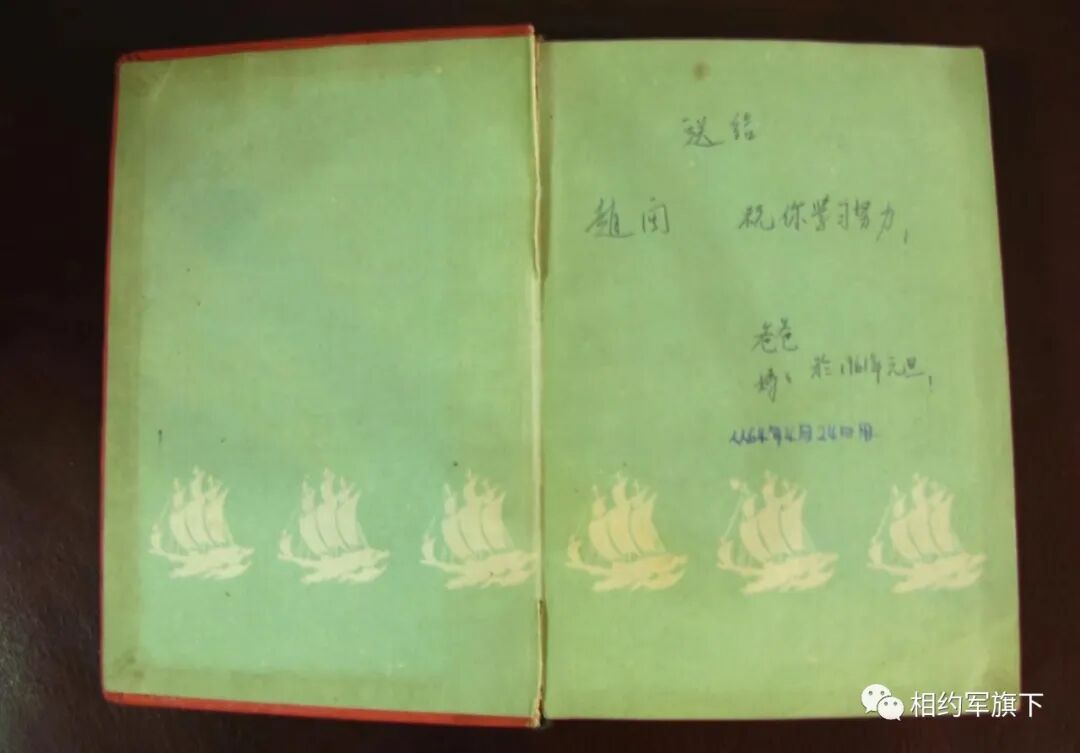 送给
赵闽 祝你学习努力,
爸爸
妈〻 于1961年元旦,
1964年4月24日用
相约军旗下